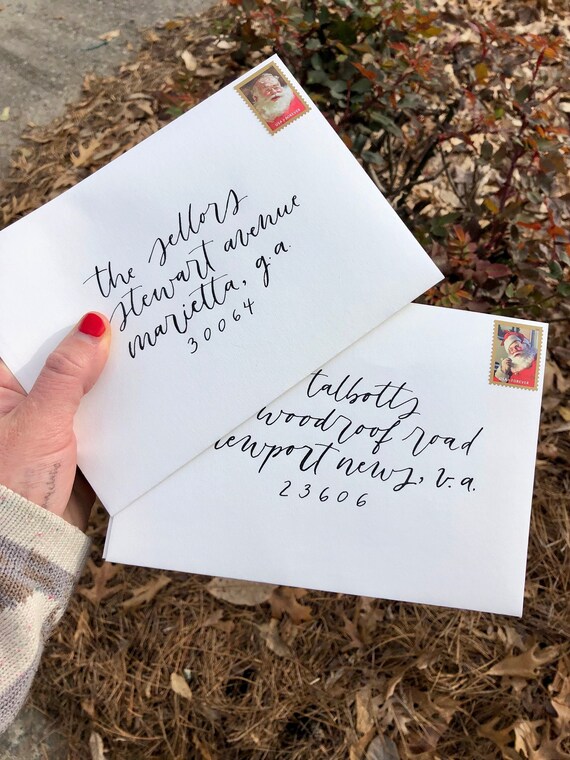 the sellors
stewart avenue
marietta, g.a.
30064
talbotts
woodroof road
newport news, v.a.
23606